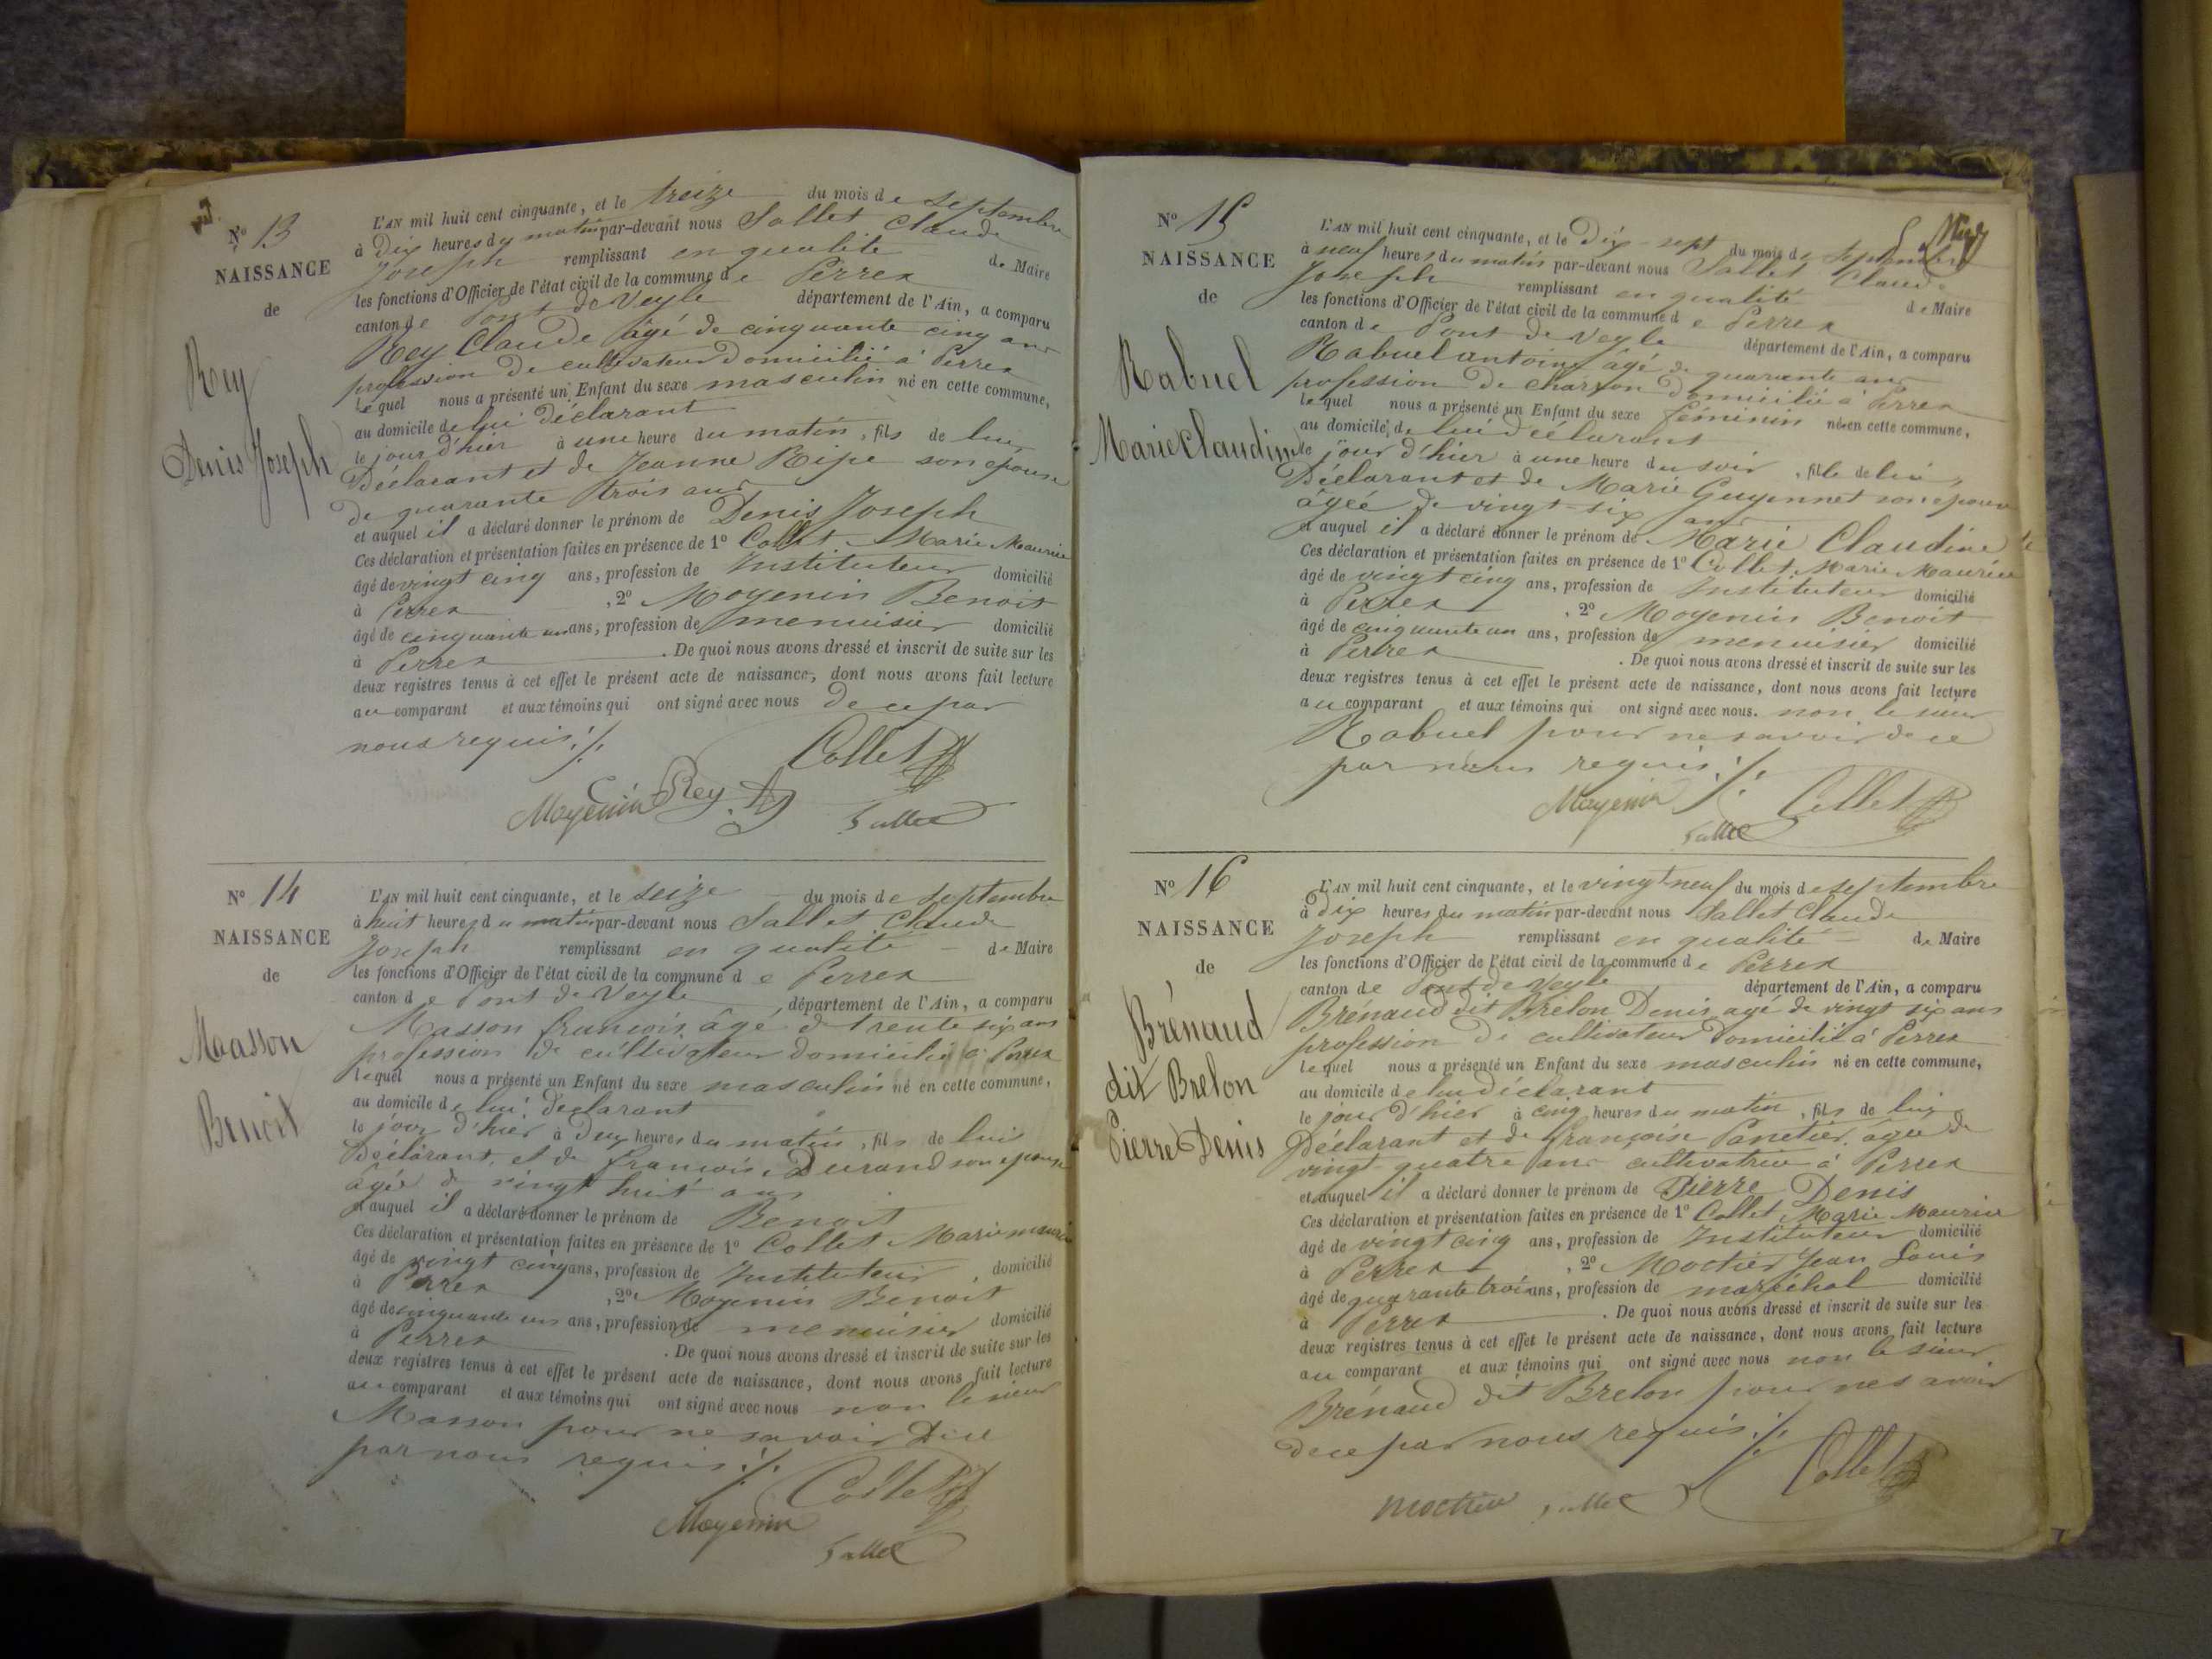 N° 13
NAISSANCE
de
Rey
Denis Joseph
L'AN mil huit cent cinquante, et le treize du mois de septembre
à Dix heures du matin par-devant nous Sallet Claude
Joseph remplissant en qualité de Maire
les fonctions d'Officier de l'état civil de la commune de Perrex
canton de Pont de Veyle département de l'Ain, a comparu
Rey Claude âgé de cinquante cinq ans
profession de cultivateur domicilié à Perrex
lequel nous a présenté un Enfant du sexe masculin né en cette commune,
au domicile de lui déclarant
le jour d'hier à une heure du matin, fils de lui
Déclarant et de Jeanne Ripe son épouse
de quarante trois ans
et auquel il a déclaré donner le prénom de Denis Joseph
Ces déclaration et présentation faites en présence de 1° Collet Marie Maurice
âgé de vingt cinq ans, profession de Instituteur domicilié
à Perrex , 2° Moyenin Benoit
âgé de cinquante un ans, profession de menuisier domicilié
à Perrex . De quoi nous avons dressé et inscrit de suite sur les
deux registres tenus à cet effet le présent acte de naissance, dont nous avons fait lecture
au comparant et aux témoins qui ont signé avec nous de ce par
nous requis ./.
Collet
Moyenin Rey
Sallet
N° 14
NAISSANCE
de
Masson
Benoit
L'AN mil huit cent cinquante, et le seize du mois de septembre
à huit heures du matin par-devant nous Sallet Claude
Joseph remplissant en qualité de Maire
les fonctions d'Officier de l'état civil de la commune de Perrex
canton de Pont de Veyle département de l'Ain, a comparu
Masson françois âgé de trente six ans
profession de cultivateur domicilié à Perrex
lequel nous a présenté un Enfant du sexe masculin né en cette commune,
au domicile de lui déclarant
le jour d'hier à Deux heures du matin, fils de lui
Déclarant, et de françoise Durand son épouse
âgée de vingt huit ans
et auquel il a déclaré donner le prénom de Benoit
Ces déclaration et présentation faites en présence de 1° Collet Marie maurice
âgé de vingt cinq ans, profession de Instituteur domicilié
à Perrex , 2° Moyenin Benoit
âgé de cinquante un ans, profession de menuisier domicilié
à Perrex . De quoi nous avons dressé et inscrit de suite sur les
deux registres tenus à cet effet le présent acte de naissance, dont nous avons fait lecture
au comparant et aux témoins qui ont signé avec nous non le sieur
Masson pour ne savoir De ce
par nous requis ./.
Collet
Moyenin
Sallet
N° 15
NAISSANCE
de
Rabuel
Marie Claudine
L'AN mil huit cent cinquante, et le Dix-sept du mois de septembre
à neuf heures du matin par-devant nous Sallet Claude
Joseph remplissant en qualité de Maire
les fonctions d'Officier de l'état civil de la commune de Perrex
canton de Pont de Veyle département de l'Ain, a comparu
Rabuel antoine âgé de quarante ans
profession de charron domicilié à Perrex
lequel nous a présenté un Enfant du sexe féminin né en cette commune,
au domicile de lui déclarant
le jour d'hier à une heure du soir, fille de lui
Déclarant et de Marie Guyennet son épouse
âgée de vingt-six ans
et auquel il a déclaré donner le prénom de Marie Claudine
Ces déclaration et présentation faites en présence de 1° Collet Marie Maurice
âgé de vingt cinq ans, profession de Instituteur domicilié
à Perrex , 2° Moyenin Benoit
âgé de cinquante un ans, profession de menuisier domicilié
à Perrex . De quoi nous avons dressé et inscrit de suite sur les
deux registres tenus à cet effet le présent acte de naissance, dont nous avons fait lecture
au comparant et aux témoins qui ont signé avec nous. non le sieur
Rabuel pour ne savoir de ce
par nous requis ./.
Moyenin Collet
Sallet
N° 16
NAISSANCE
de
Brénaud
dit Brelon
Pierre Denis
L'AN mil huit cent cinquante, et le vingt neuf du mois de septembre
à Dix heures du matin par-devant nous Sallet Claude
Joseph remplissant en qualité de Maire
les fonctions d'Officier de l'état civil de la commune de Perrex
canton de Pont de Veyle département de l'Ain, a comparu
Brénaud dit Brelon Denis âgé de vingt six ans
profession de cultivateur domicilié à Perrex
lequel nous a présenté un Enfant du sexe masculin né en cette commune,
au domicile de lui déclarant
le jour d'hier à cinq heures du matin, fils de lui
Déclarant et de françoise Panetier, âgée de
vingt-quatre ans cultivatrice à Perrex
et auquel il a déclaré donner le prénom de Pierre Denis
Ces déclaration et présentation faites en présence de 1° Collet Marie Maurice
âgé de vingt cinq ans, profession de Instituteur domicilié
à Perrex , 2° Moctier Jean Louis
âgé de quarante trois ans, profession de maréchal domicilié
à Perrex . De quoi nous avons dressé et inscrit de suite sur les
deux registres tenus à cet effet le présent acte de naissance, dont nous avons fait lecture
au comparant et aux témoins qui ont signé avec nous non le sieur
Brénaud dit Brelon pour ne savoir
de ce par nous requis ./.
Collet
Moctier Sallet